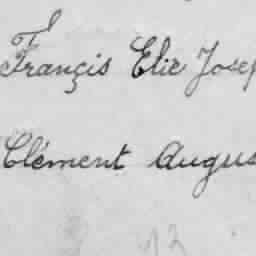 Françis Elie Josep
Clément Augus